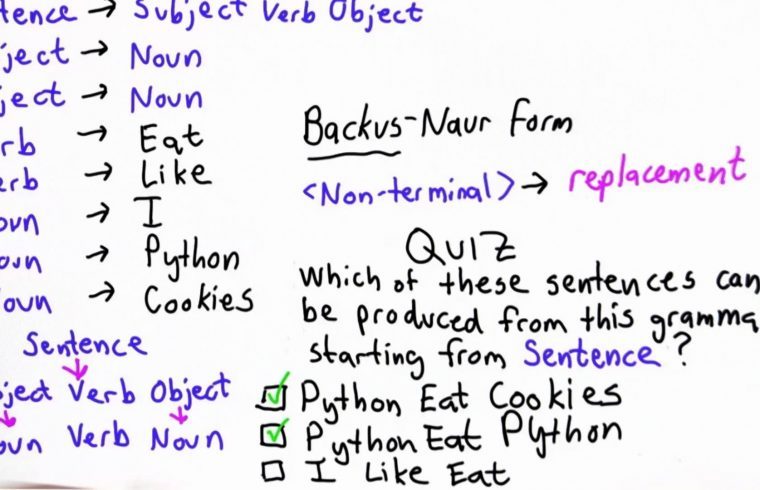 tence → Subject Verb Object
ject → Noun
ject → Noun
rb → Eat
erb → Like
oun → I
oun → Python
oun → Cookies
Sentence
ject Verb Object
oun Verb Noun
Backus-Naur Form
<Non-terminal> → replacement
QUIZ
Which of these sentences can
be produced from this gramma
starting from Sentence?
Python Eat Cookies
Python Eat Python
I Like Eat